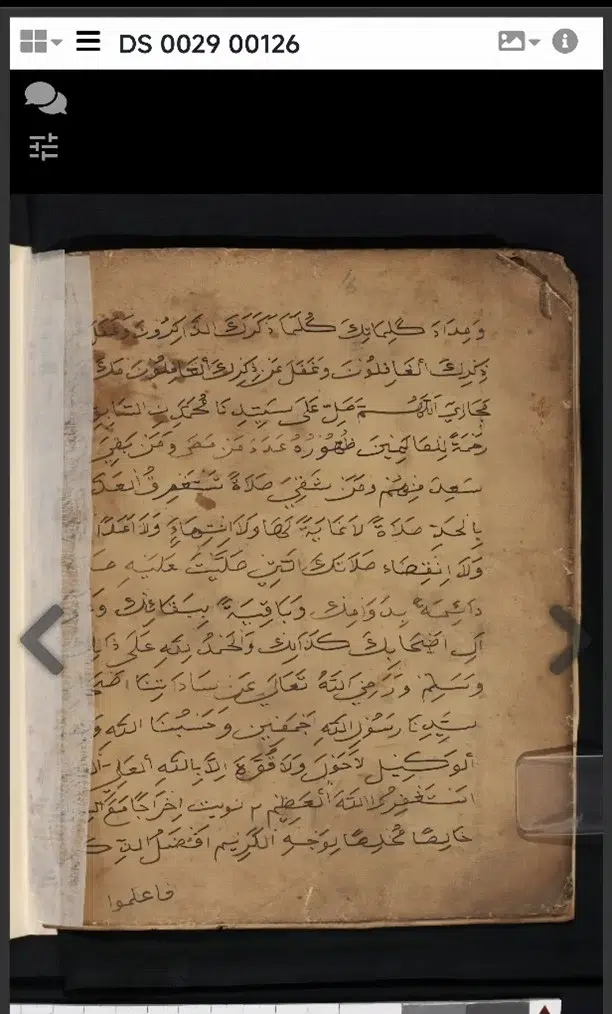 DS 0029 00126
وَمِدَادَ كَلِمَاتِكَ كُلَّمَا ذَكَرَكَ الذَّاكِرُونَ وَغَفَلَ
ذِكْرِكَ ألغَافِلُونَ وَغَفَلَ عَنْ ذِكْرِكَ ألغَافِلُونَ
اَللّٰهُمَّ صَلِّ عَلَى سَيِّدِنَا مُحَمَّدٍ السَّابِقِ
رَحْمَةً لِلْعَالَمِيْنَ ظُهُوْرُهُ عَدَدَ مَنْ مَضَى وَمَنْ بَقِيَ
سَعِدَ مِنْهُمْ وَمَنْ شَقِيَ صَلَاةً تَسْتَغْرِقُ الْعَدَّ
بِالْحَدِّ صَلَاةً لَاغَايَةً لَهَا وَلَا اِنْتِهَاءَ وَلَا
وَلَا اِنْقِضَاءَ صَلَاتَكَ الَّتِيْ صَلَّيْتَ عَلَيْهِ
دَائِمَةً بِدَوَامِكَ وَبَاقِيَةً بِبَقَائِكَ
كَذَالِكَ وَالْحَمْدُ لِلّٰهِ عَلَى
وَسَلِّمْ وَرَضِيَ اللّٰهُ تَعَالَى عَنْ سَادَاتِنَا
سَيِّدِنَا رَسُوْلِ اللّٰهِ اَجْمَعِيْنَ وَحَسْبُنَا اللّٰهُ
ألوَكِيْلُ لَاحَوْلَ وَلَا قُوَّةَ اِلَّا بِاللّٰهِ ألعَلِيِّ
اَسْتَغْفِرُ اللّٰهَ ألعَظِيْمَ م نويت اِخْرَاجًا
خَالِصًا مُخْلِصًا لِوَجْهِ الْكَرِيْمِ اَفْضَلُ
فاعلموا